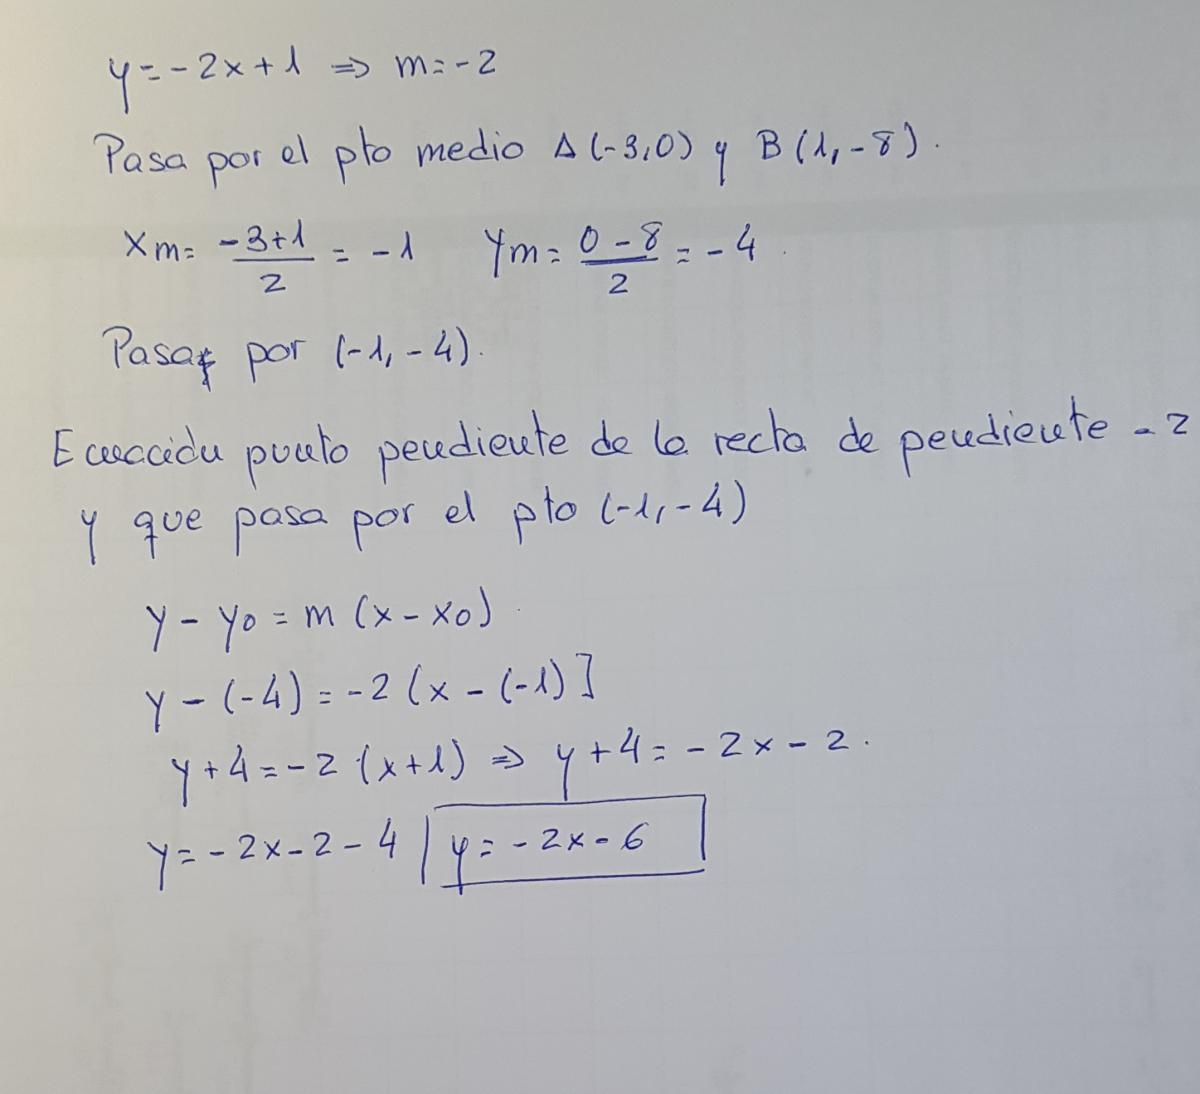 y=-2x+1 ⇒ m=-2
Pasa por el pto medio A(-3,0) y B(1,-8).
Xm= (-3+1)/2 = -1 Ym= (0-8)/2 = -4.
Pasa por (-1,-4).
Ecuación punto pendiente de la recta de pendiente -2
y que pasa por el pto (-1,-4)
y-y0=m(x-x0).
y-(-4)=-2(x-(-1)]
y+4=-2·(x+1) ⇒ y+4=-2x-2.
y=-2x-2-4 | y=-2x-6